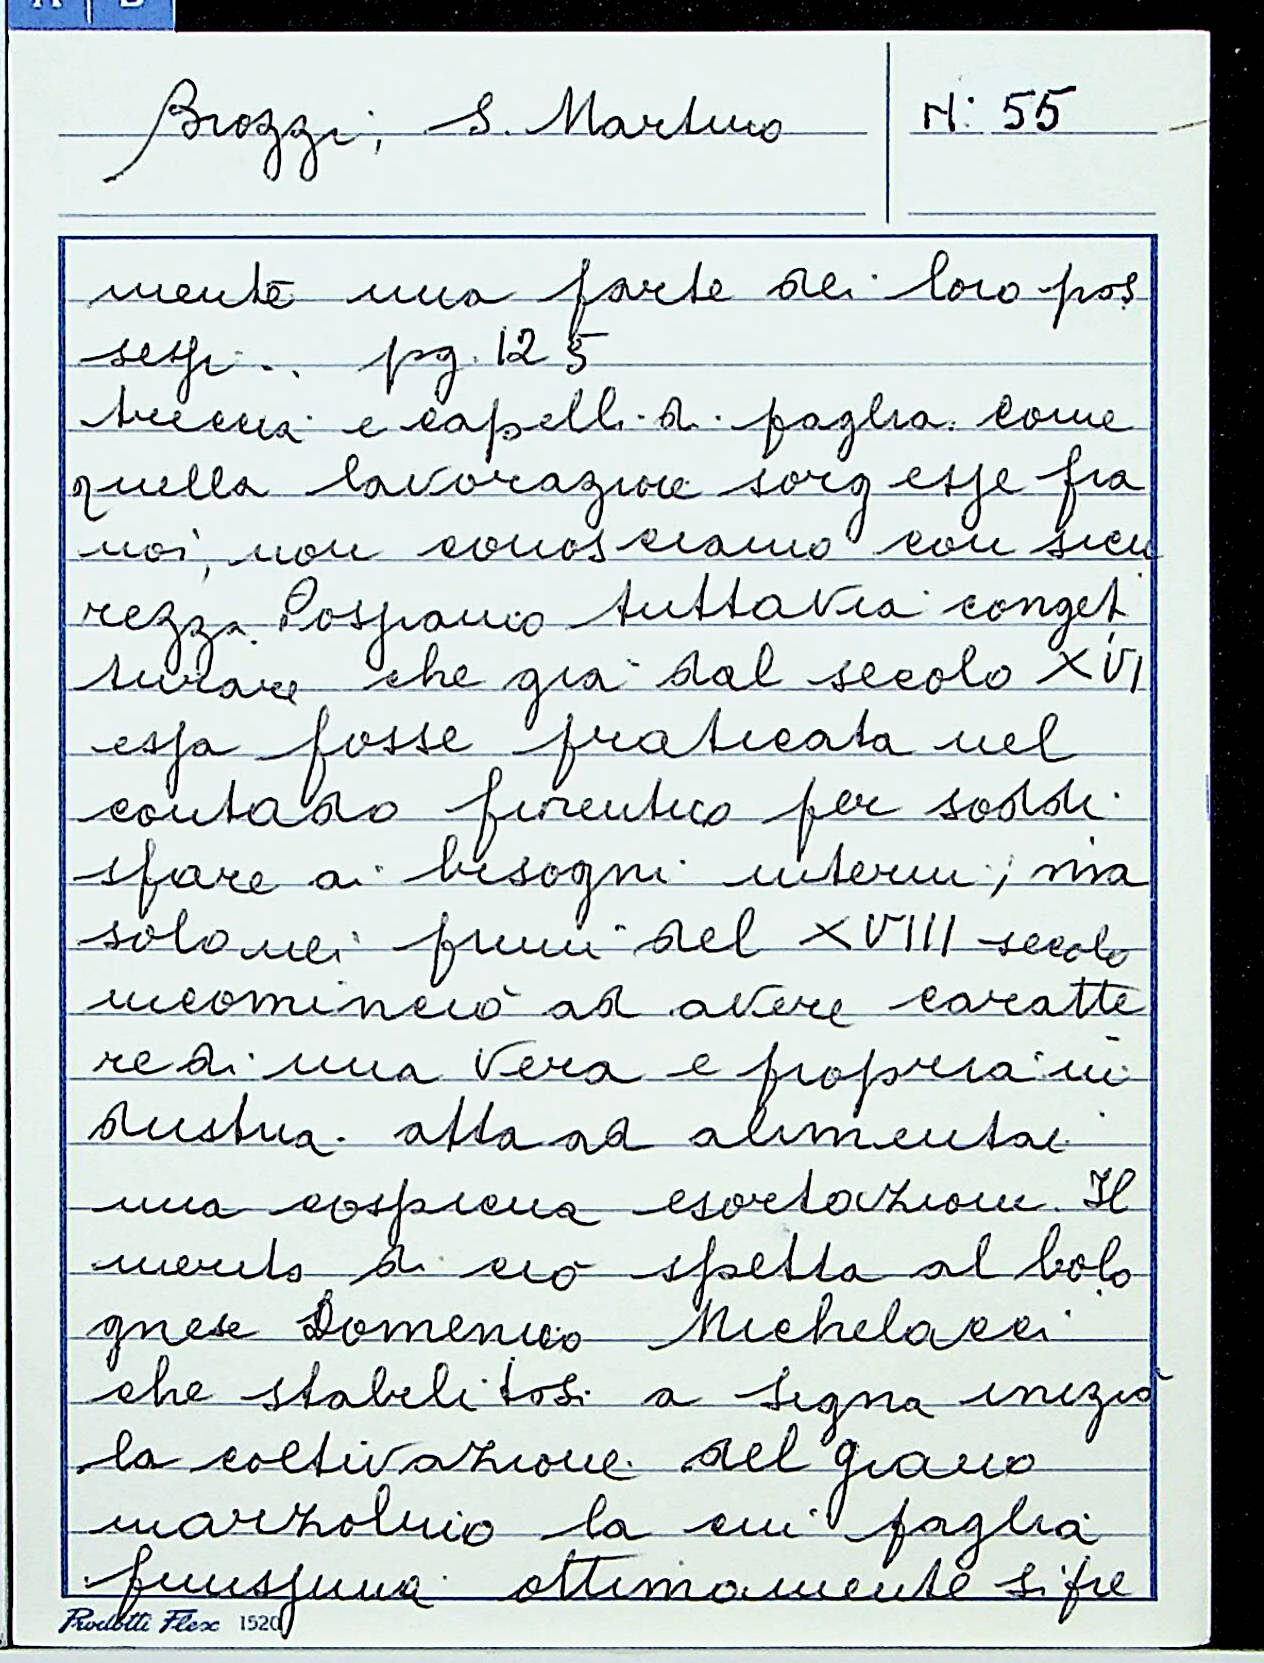 A B
Brozzi, S. Martino
N: 55
mente una parte dei loro pos
sessi .. pg. 125
treccia e capelli di paglia. come
quella lavorazione sorgesse fra
noi, non conosciamo con sicu
rezza. Possiamo tuttavia conget
turare che già dal secolo XVI
essa fosse praticata nel
contado fiorentino per soddi
sfare ai bisogni interni; ma
solo nei primi del XVIII secolo
incominciò ad avere caratte
re di una vera e propria in
dustria. atta ad alimentar
una cospicua esortazione. Il
merito di ciò spetta al bolo
gnese Domenico Michelacci
che stabilitosi a Signa iniziò
la coltivazione del grano
marzolino la cui paglia
finissima ottimamente si pre
Prodotti Flex 1520